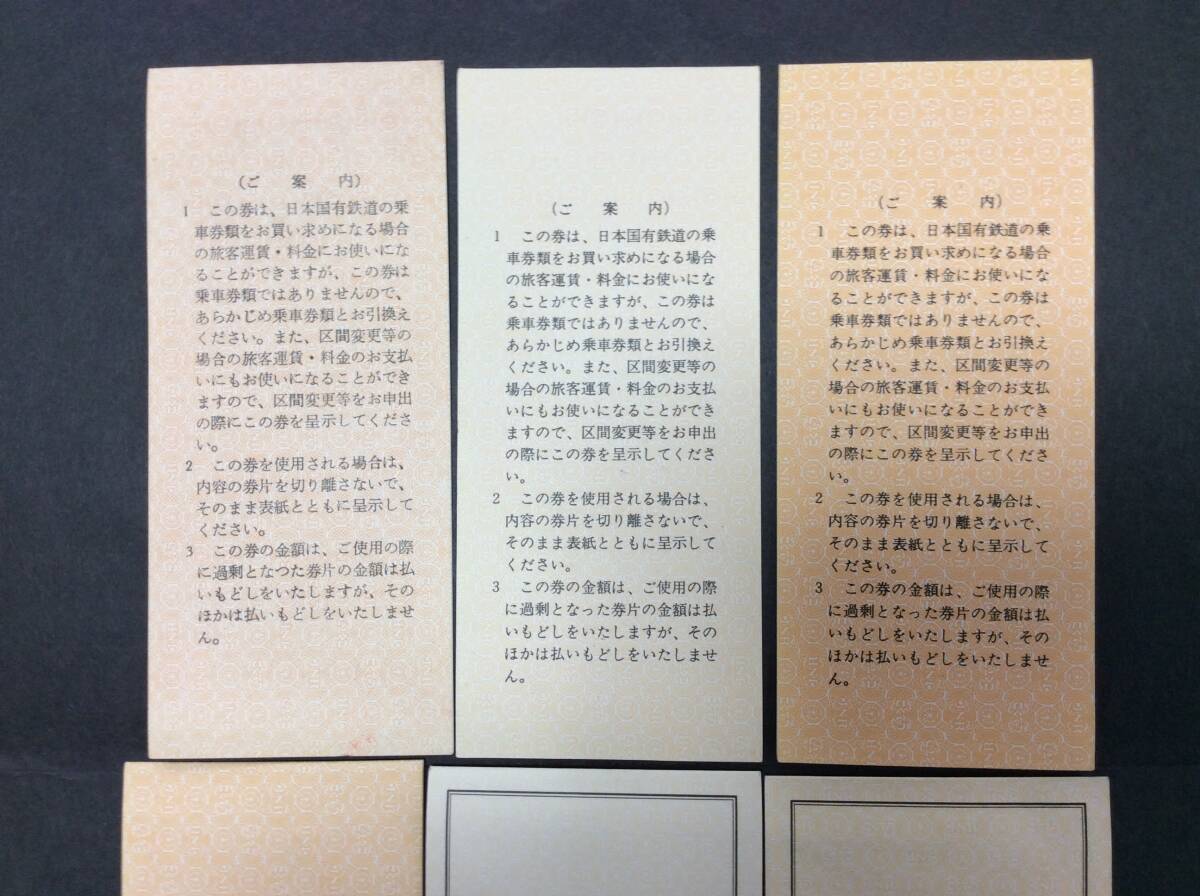 (ご案内)
1 この券は、日本国有鉄道の乗
車券類をお買い求めになる場合
の旅客運賃・料金にお使いにな
ることができますが、この券は
乗車券類ではありませんので、
あらかじめ乗車券類とお引換え
ください。また、区間変更等の
場合の旅客運賃・料金のお支払
いにもお使いになることができ
ますので、区間変更等をお申出
の際にこの券を呈示してくださ
い。
2 この券を使用される場合は、
内容の券片を切り離さないで、
そのまま表紙とともに呈示して
ください。
3 この券の金額は、ご使用の際
に過剰となつた券片の金額は払
いもどしをいたしますが、その
ほかは払いもどしをいたしませ
ん。
(ご案内)
1 この券は、日本国有鉄道の乗
車券類をお買い求めになる場合
の旅客運賃・料金にお使いにな
ることができますが、この券は
乗車券類ではありませんので、
あらかじめ乗車券類とお引換え
ください。また、区間変更等の
場合の旅客運賃・料金のお支払
いにもお使いになることができ
ますので、区間変更等をお申出
の際にこの券を呈示してくださ
い。
2 この券を使用される場合は、
内容の券片を切り離さないで、
そのまま表紙とともに呈示して
ください。
3 この券の金額は、ご使用の際
に過剰となった券片の金額は払
いもどしをいたしますが、その
ほかは払いもどしをいたしませ
ん。
(ご案内)
1 この券は、日本国有鉄道の乗
車券類をお買い求めになる場合
の旅客運賃・料金にお使いにな
ることができますが、この券は
乗車券類ではありませんので、
あらかじめ乗車券類とお引換え
ください。また、区間変更等の
場合の旅客運賃・料金のお支払
いにもお使いになることができ
ますので、区間変更等をお申出
の際にこの券を呈示してくださ
い。
2 この券を使用される場合は、
内容の券片を切り離さないで、
そのまま表紙とともに呈示して
ください。
3 この券の金額は、ご使用の際
に過剰となった券片の金額は払
いもどしをいたしますが、その
ほかは払いもどしをいたしませ
ん。